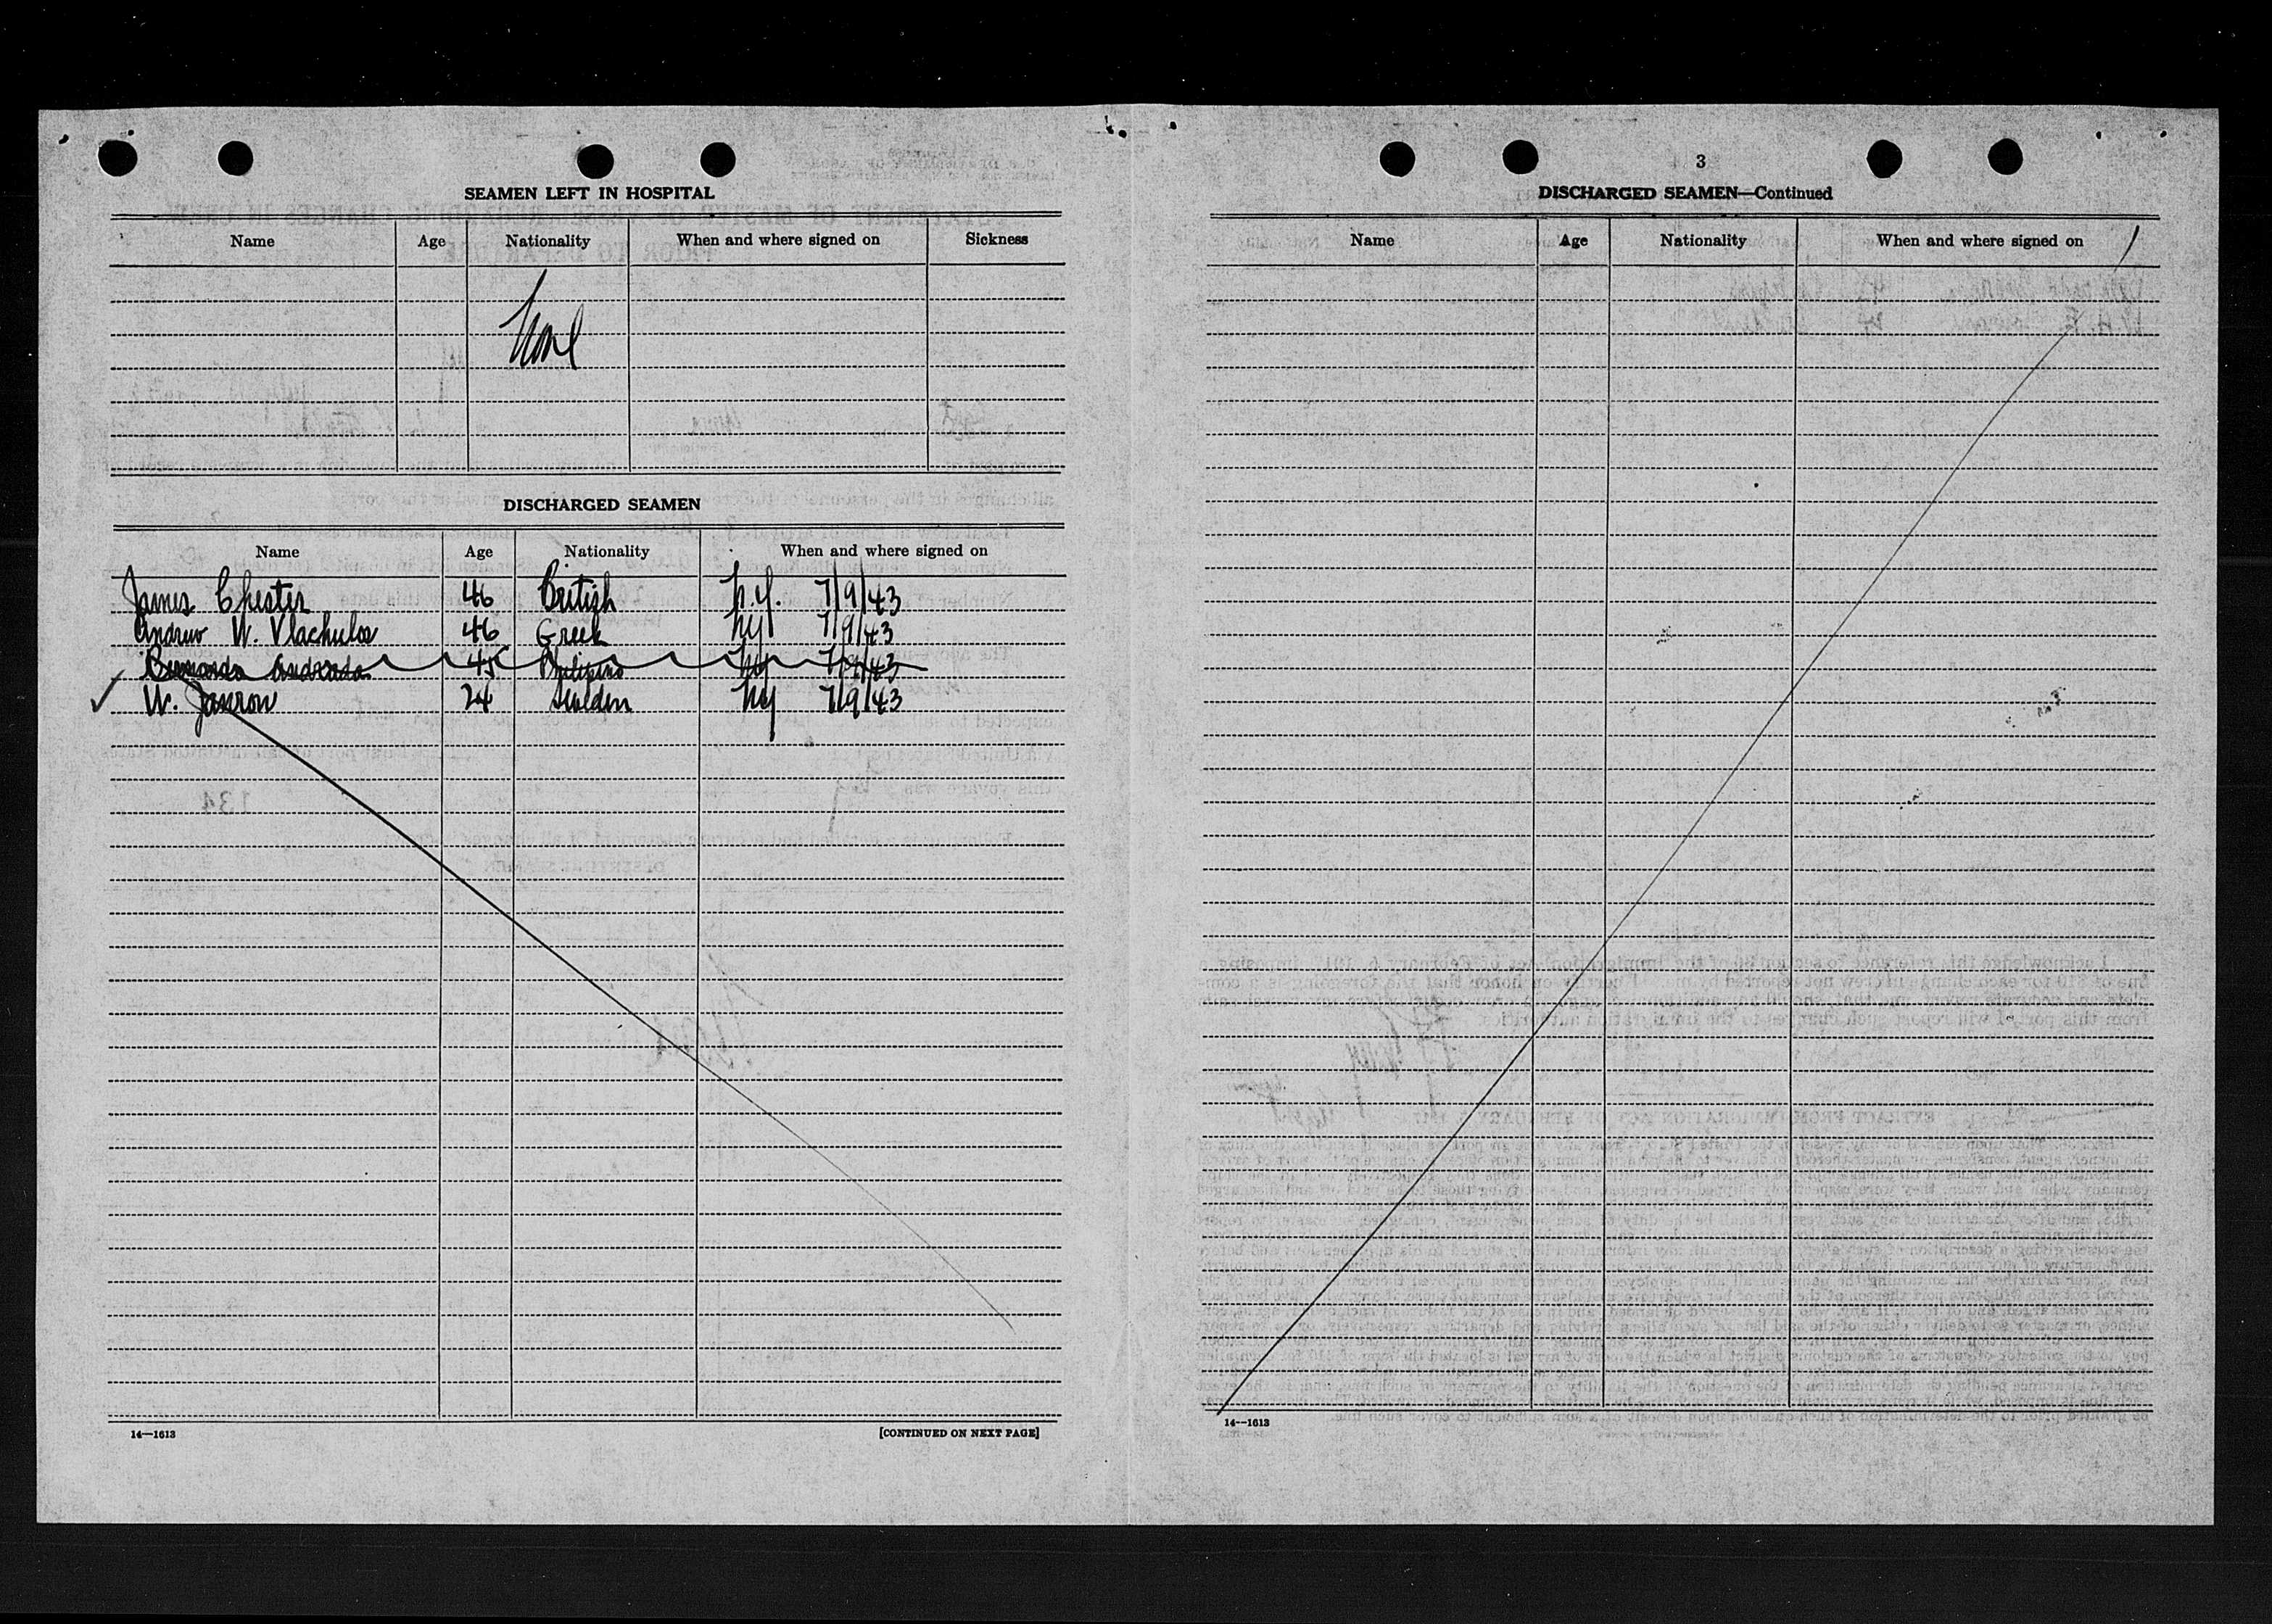 SEAMEN LEFT IN HOSPITAL
Name Age Nationality When and where signed on Sickness
None
DISCHARGED SEAMEN
Name Age Nationality When and where signed on
James Chester 46 British N.Y. 7/9/43
Andrew W. Vlachulos 46 Greek NY 7/9/43
Bernardo Andrada 45 Philipino NY 7/9/43
✓ W. 24 NY 7/9/43
14—1613 [CONTINUED ON NEXT PAGE]
3
DISCHARGED SEAMEN—Continued
Name Age Nationality When and where signed on
14—1613